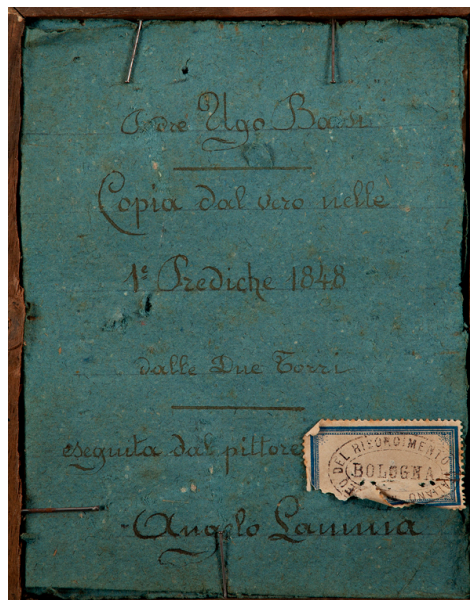 Padre Ugo Bassi
Copia dal vero nelle
1e Prediche 1848
dalle Due Torri
eseguita dal pittore
Angelo Lamma
DEL RISORGIMENTO
BOLOGNA